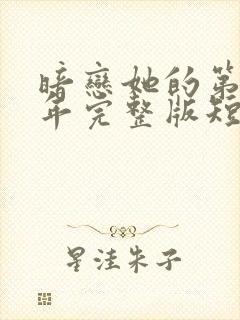 暗戀她的第
年完整版短
星洼朱子